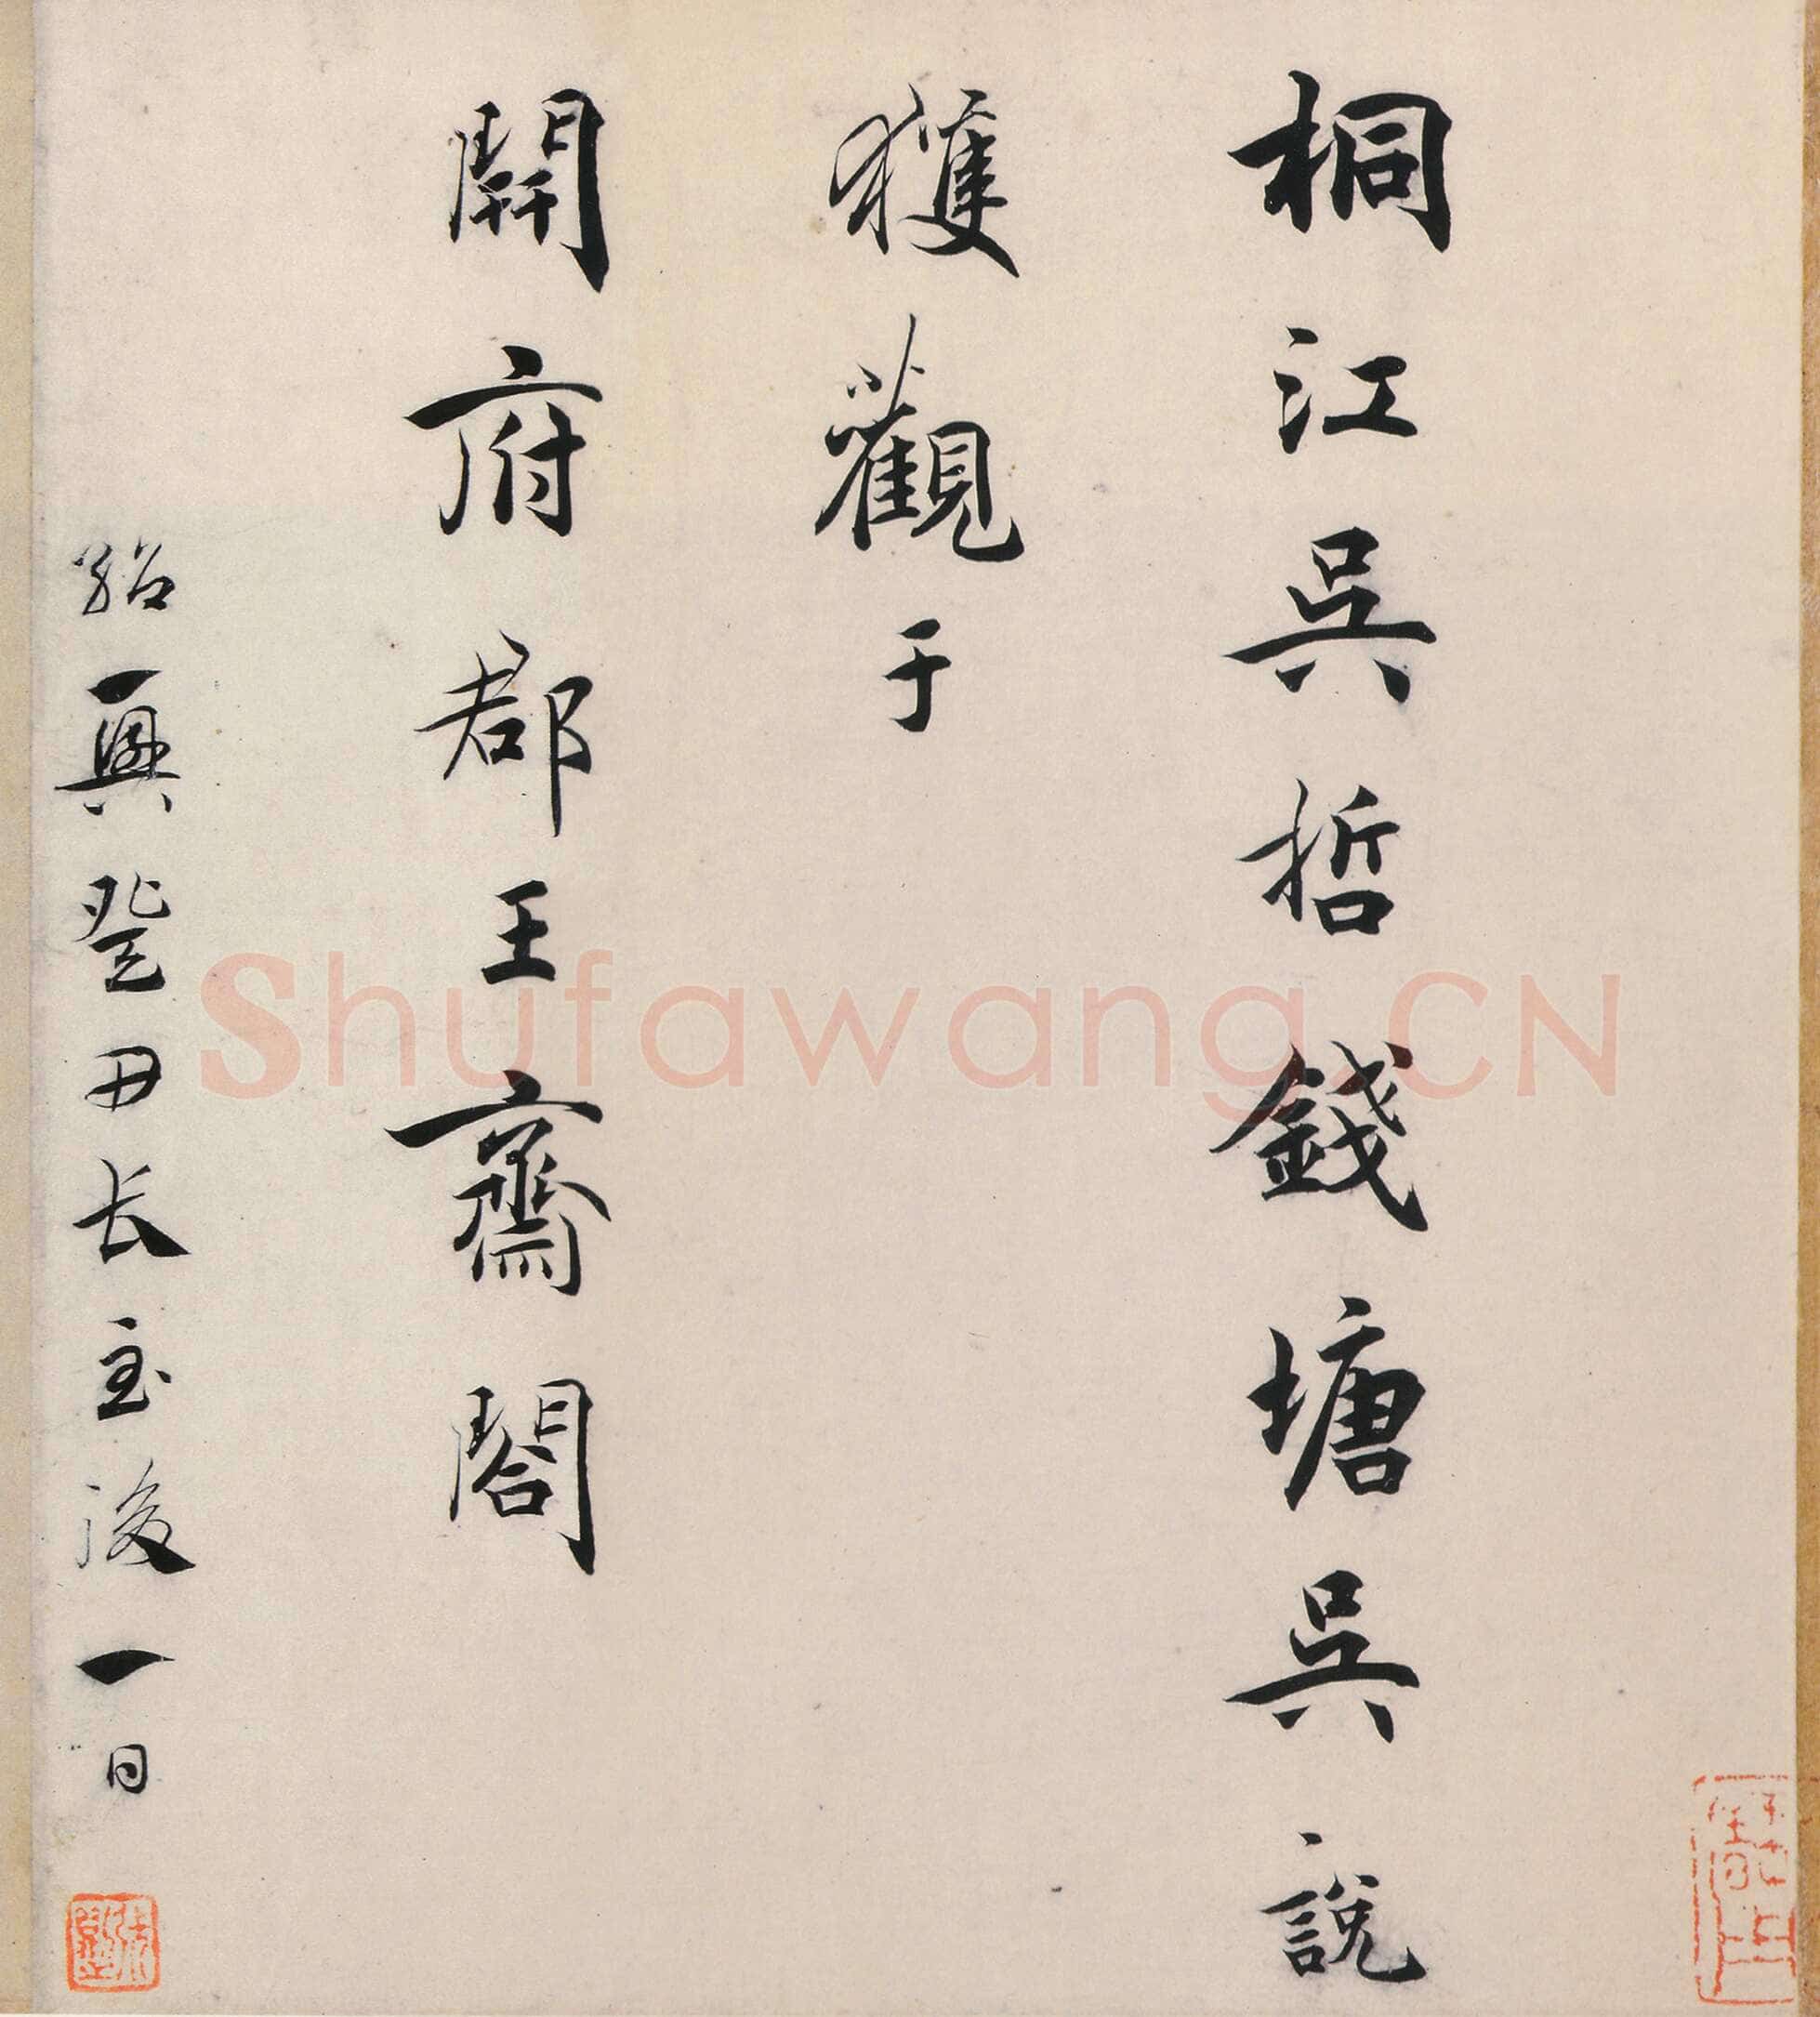 桐江吳哲錢塘吳說
獲觀于
開府郡王齋閤
紹興癸丑長至後一日
Shufawang.CN